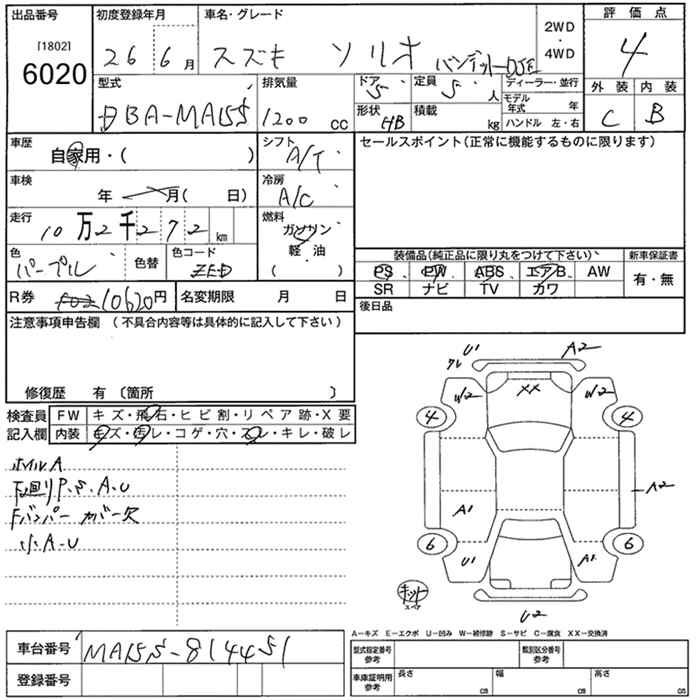 出品番号 初度登録年月 車名・グレード 2WD・4WD 評価点
[1802]
6020 26 6月 スズキ ソリオ バンデット 4
型式 排気量 ドア 定員 ディーラー・並行 外装 内装
DBA-MA15S 1200 cc 5 5人 モデル年式 年 C B
形状 積載
HB kg ハンドル 左・右
車歴 シフト セールスポイント(正常に機能するものに限ります)
自家用・( ) A/T
車検 冷房
年 月( 日) A/C
走行 燃料
10万2千272km ガソリン
軽・油
( )
色 色替 色コード 装備品(純正品に限り丸をつけて下さい) 新車保証書
パープル ZED PS PW ABS エアB AW 有・無
SR ナビ TV カワ
R券 10620円 名変期限 月 日 後日品
注意事項申告欄 (不具合内容等は具体的に記入して下さい)
修復歴 有 〔箇所 〕
検査員 FW キズ・飛石・ヒビ割・リペア跡・X要
記入欄 内装 キズ・汚レ・コゲ・穴・スレ・キレ・破レ
ホイルA
下廻りP.S.A.U
Fバンパー カバー欠
小A.U
U1 A2
XX
W2 W2
4 4
A2
A1
6 6
U1 A1
キット
U2
A-キズ E-エクボ U-凹み W-補修跡 S-サビ C-腐食 XX-交換済
車台番号 MA15S-814451
登録番号
型式指定番号 類別区分番号
参考 参考
車庫証明用 長さ 幅 高さ
参考 cm cm cm